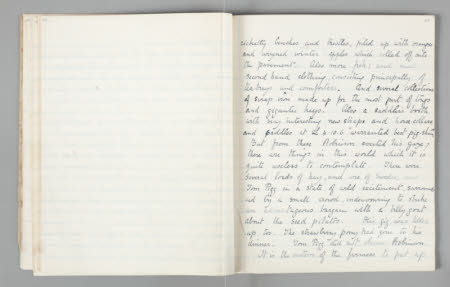 rickety benches and trestles, piled up with oranges
and wizened winter apples which rolled off onto
the pavement. Also more fish; and
second hand clothing, consisting principally of
and comforters. And several collections
of scrap iron made up for the most part of
and gigantic hasps. Also a saddler's booth
with very interesting new straps and horse collars
and saddles at £2.10.6 warranted best pig-skin
But from these Robinson averted his gaze;
there are things in this world which it is
quite useless to contemplate. There were
several loads of hay, and one of swedes,
Tom Pigg in a state of wild excitement, surroun
ded by a small crowd, endeavouring to strike
an advantageous bargain with a billy goat
about the seed potatoes. His gig was
up too. The strawberry pony had gone to his
dinner. Tom Pigg did not Robinson.
It is the custom of the farmers to put up